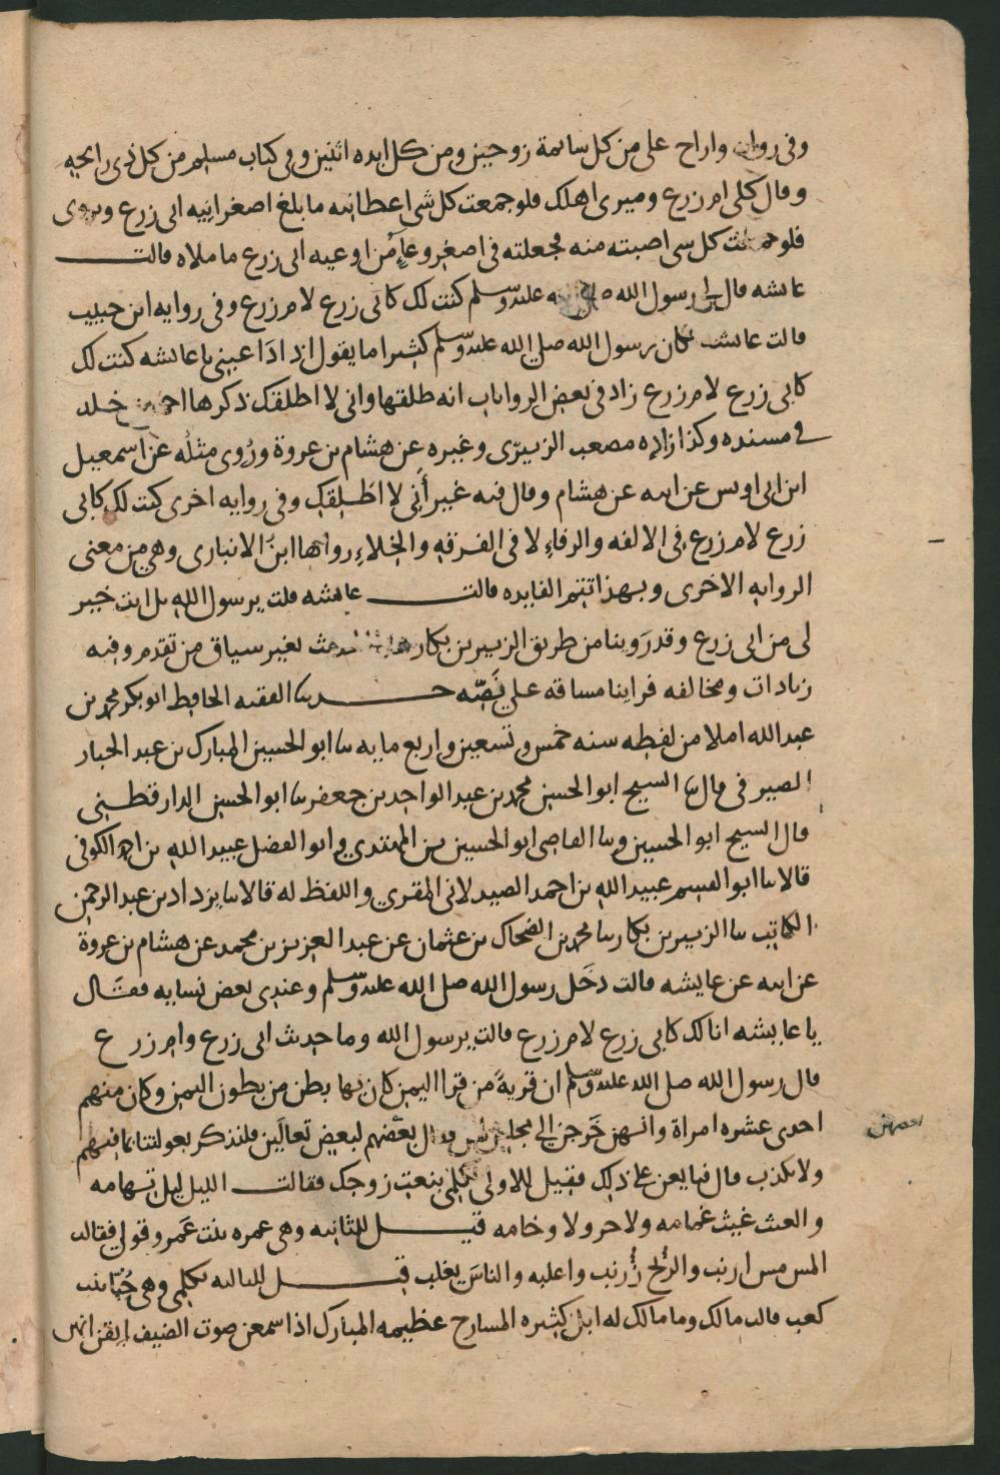 وفى رواية واراح على من كل سائمة زوجين ومن كل ابده اثنين وفى كتاب مسلم من كل ذى رايحه
وقال كلى ام زرع وميرى اهلك فلو جمعت كل شى اعطانيه ما بلغ اصغر انيه ابى زرع ويروى
فلو جمعت كل شى اصبته منه فجعلته فى اصغر وعاء من اوعيه ابى زرع ما ملاه قالت
عائشه قال لى رسول الله صلى الله عليه وسلم كنت لك كابى زرع لام زرع وفى روايه ابن حبيب
قالت عائشه كان رسول الله صلى الله عليه وسلم كثيرا ما يقول اذا داعبنى يا عائشه كنت لك
كابى زرع لام زرع زاد فى بعض الروايات انه طلقها وانى لا اطلقك ذكرها احمد بن خلد
فى مسنده وكذا زاده مصعب الزبيرى وغيره عن هشام بن عروة وروى مثله عن اسمعيل
ابن ابى اويس عن ابيه عن هشام وقال فيه غير أنى لا اطلقك وفى روايه اخرى كنت لك كابى
زرع لام زرع فى الالفه والرفاء لا فى الفرقه والخلاء رواها ابن الانبارى وهى من معنى
الروايه الاخرى وبهذا تتم الفايده قالت عائشه قلت يرسول الله بل انت خير
لى من ابى زرع وقد روينا من طريق الزبير بن بكار هذا الحديث بغير سياق من تقدم وفيه
زيادات ومخالفه فراينا مساقه على نصه حدثنا الفقيه الحافظ ابو بكر محمد بن
عبد الله املا من لفظه سنه خمس وتسعين واربع مايه ثنا ابو الحسين المبارك بن عبد الجبار
الصيرفى قال ثنا الشيخ ابو الحسين محمد بن عبد الواحد بن جعفر ثنا ابو الحسن الدارقطنى
قال الشيخ ابو الحسين وثنا القاضى ابو الحسين بن المهتدى وابو الفضل عبيد الله بن احمد الكوفى
قالا ثنا ابو القسم عبيد الله بن احمد الصيدلانى المقرى واللفظ له قالا ثنا يزداد بن عبد الرحمن
الكاتب ثنا الزبير بن بكار ثنا محمد بن الضحاك بن عثمان عن عبد العزيز بن محمد عن هشام بن عروة
عن ابيه عن عايشه قالت دخل رسول الله صلى الله عليه وسلم وعندى بعض نسايه فقال
يا عايشه انا لك كابى زرع لام زرع قالت يرسول الله وما حديث ابى زرع وام زرع
قال رسول الله صلى الله عليه وسلم ان قرية من قرا اليمن كان بها بطن من بطون اليمن وكان منهم
احدى عشره امراة وانهن خرجن الى مجلس قال بعضهم لبعض تعالين فلنذكر بعولتنا بما فيهم
ولا نكذب قال فتبايعن على ذلك فقيل للاولى تكلمى بنعت زوجك فقالت الليل ليل تهامه
والغيث غيث غمامه ولا حر ولا وخامه قيل للثانيه وهى عمره بنت عمرو قولى فقالت
المس مس ارنب والريح ريح زرنب واغلبه والناس يغلب قيل للثالثه تكلمى وهى حبى بنت
كعب قالت مالك وما مالك له ابل كثيره المسارح عظيمه المبارك اذا سمعن صوت الضيف ايقن انهن